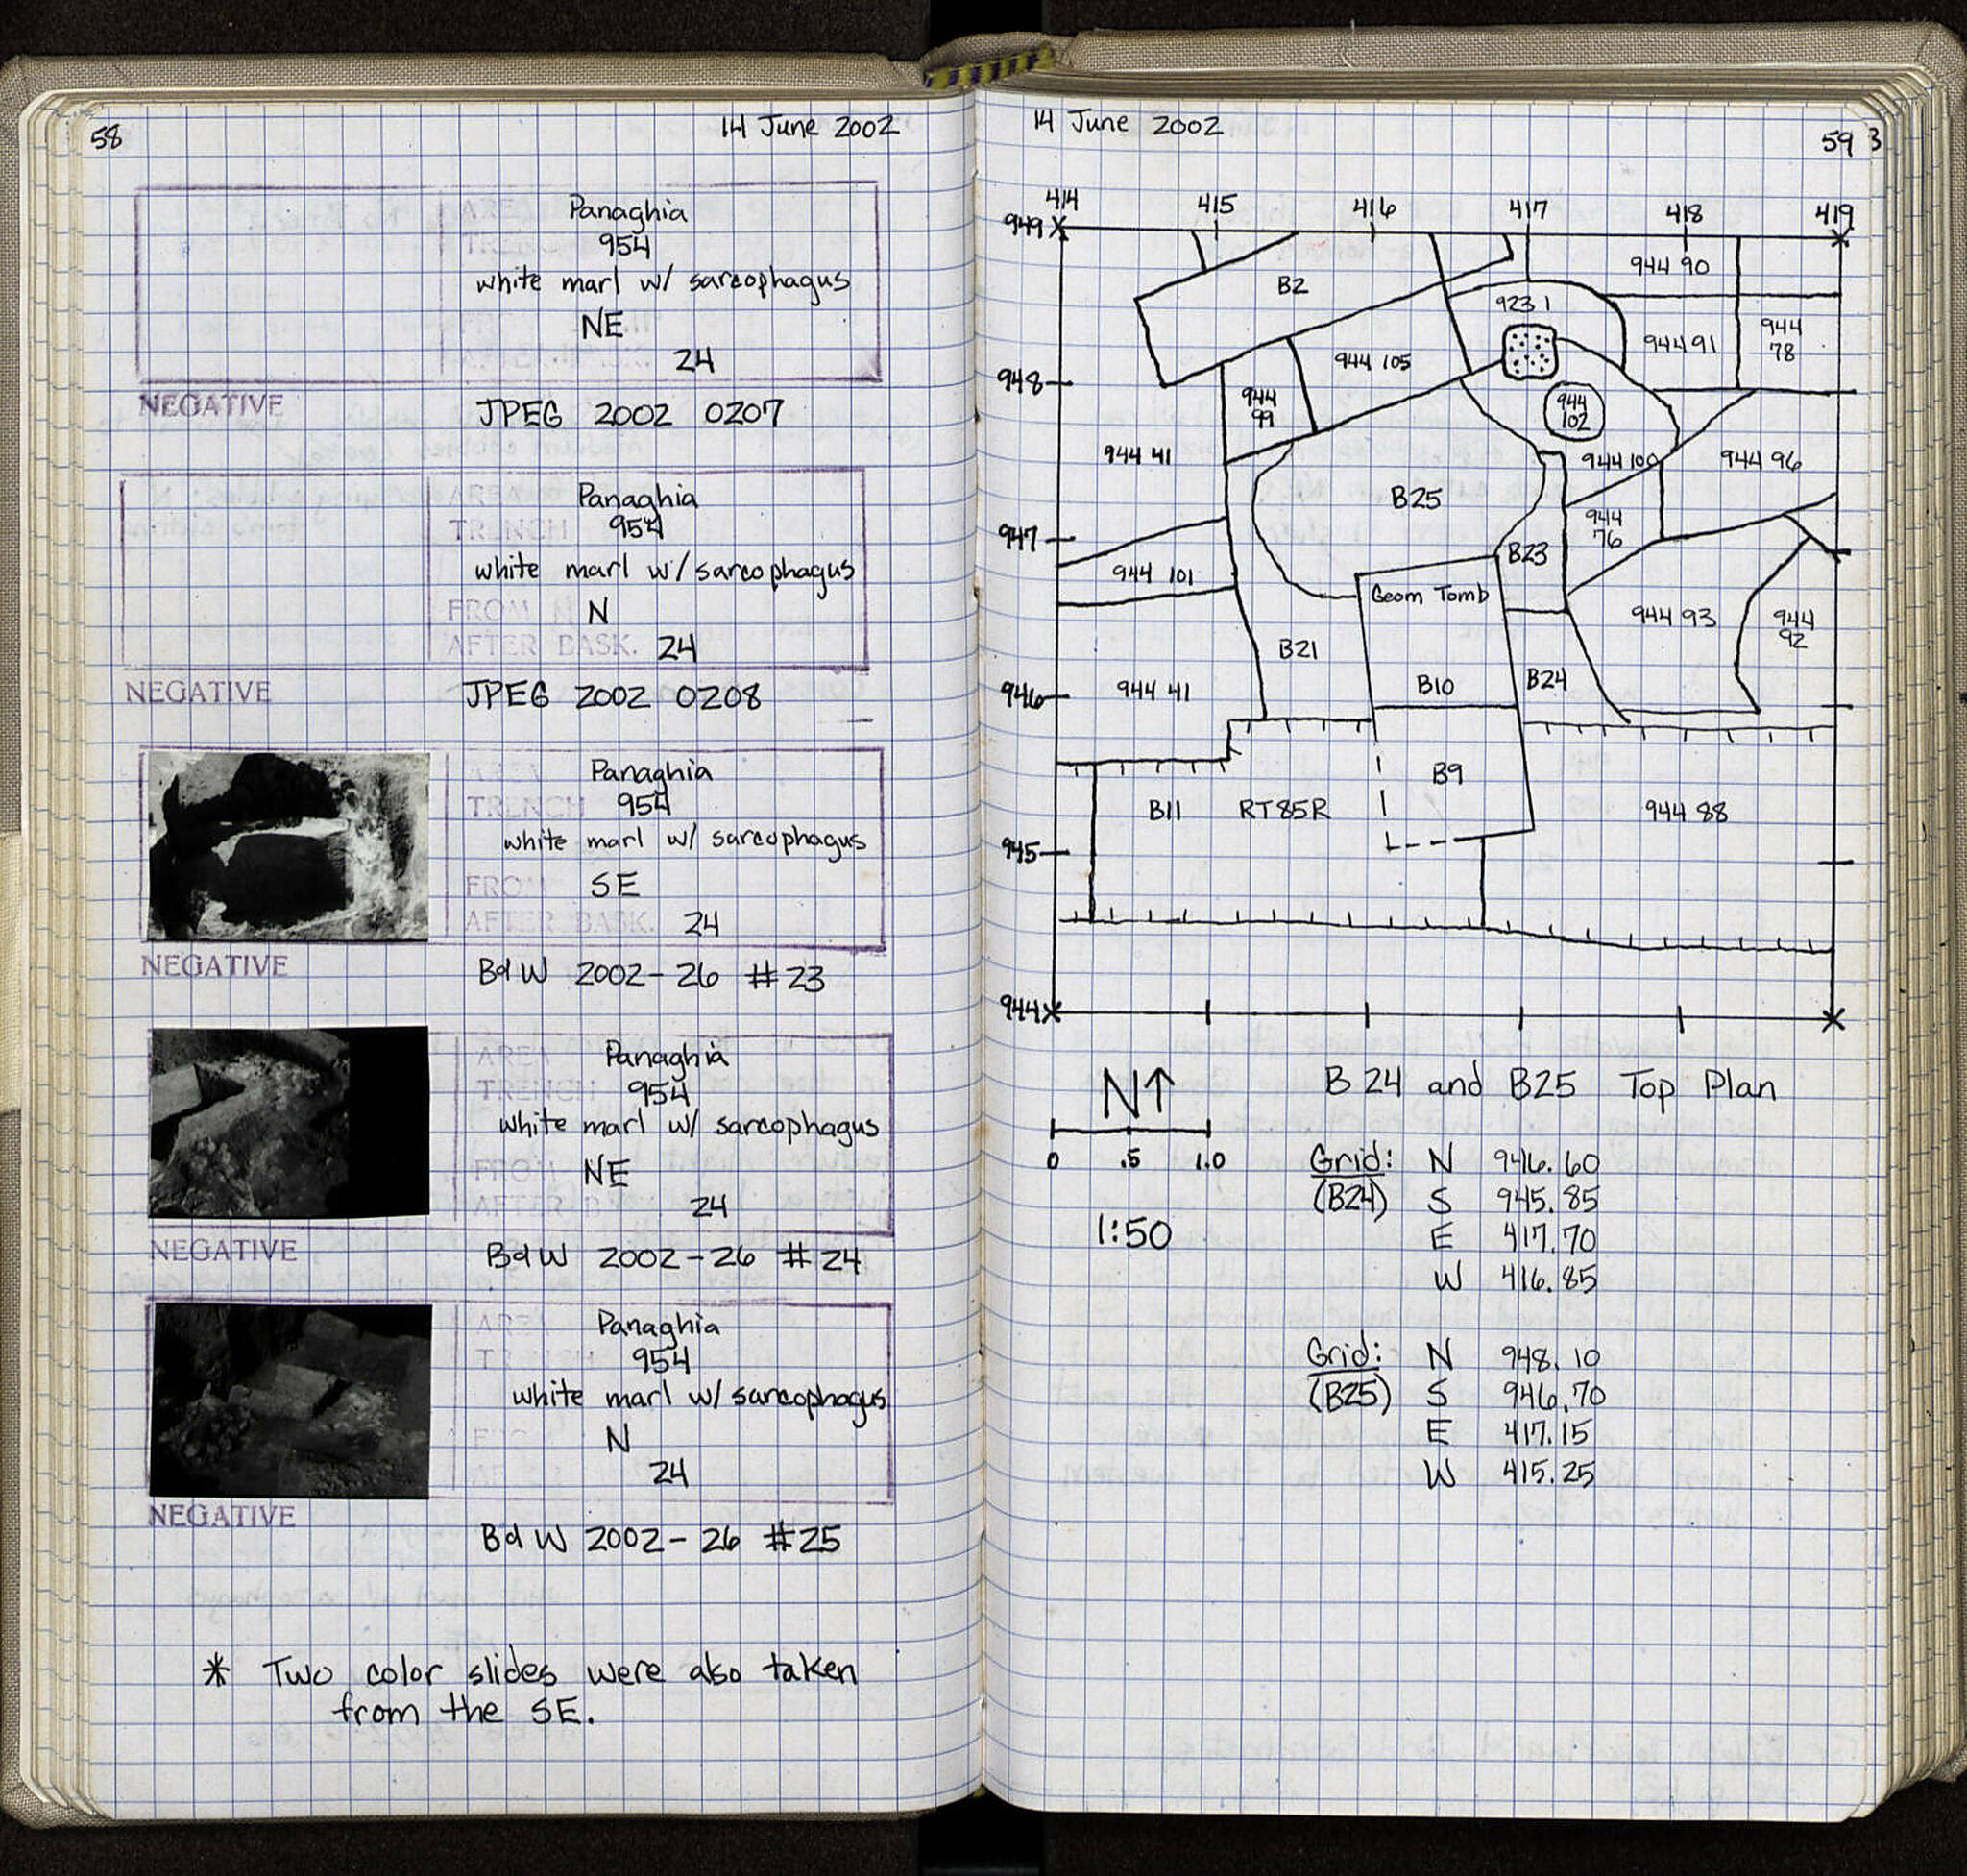 58
14 June 2002
AREA Panaghia
TRENCH 954
white marl w/ sarcophagus
NE
24
NEGATIVE JPEG 2002 0207
AREA Panaghia
TRENCH 954
white marl w/ sarcophagus
FROM N
AFTER BASK. 24
NEGATIVE JPEG 2002 0208
AREA Panaghia
TRENCH 954
white marl w/ sarcophagus
FROM SE
AFTER BASK. 24
NEGATIVE B&W 2002-26 #23
AREA Panaghia
TRENCH 954
white marl w/ sarcophagus
FROM NE
AFTER B 24
NEGATIVE B&W 2002-26 #24
AREA Panaghia
TRENCH 954
white marl w/ sarcophagus
N
24
NEGATIVE B&W 2002-26 #25
* Two color slides were also taken
from the SE.
14 June 2002
59 3
414 415 416 417 418 419
949
B2
944 90
923 1
944 91
944
78
948
944 105
944
99
944
102
944 41
944 100
944 96
B25
944
76
947
B23
944 101
Geom Tomb
944 93
944
92
B21
946
944 41
B10
B24
B9
B11 RT85R
944 88
945
944
N↑
B24 and B25 Top Plan
0 .5 1.0
1:50
Grid: N 946.60
(B24) S 945.85
E 417.70
W 416.85
Grid: N 948.10
(B25) S 946.70
E 417.15
W 415.25